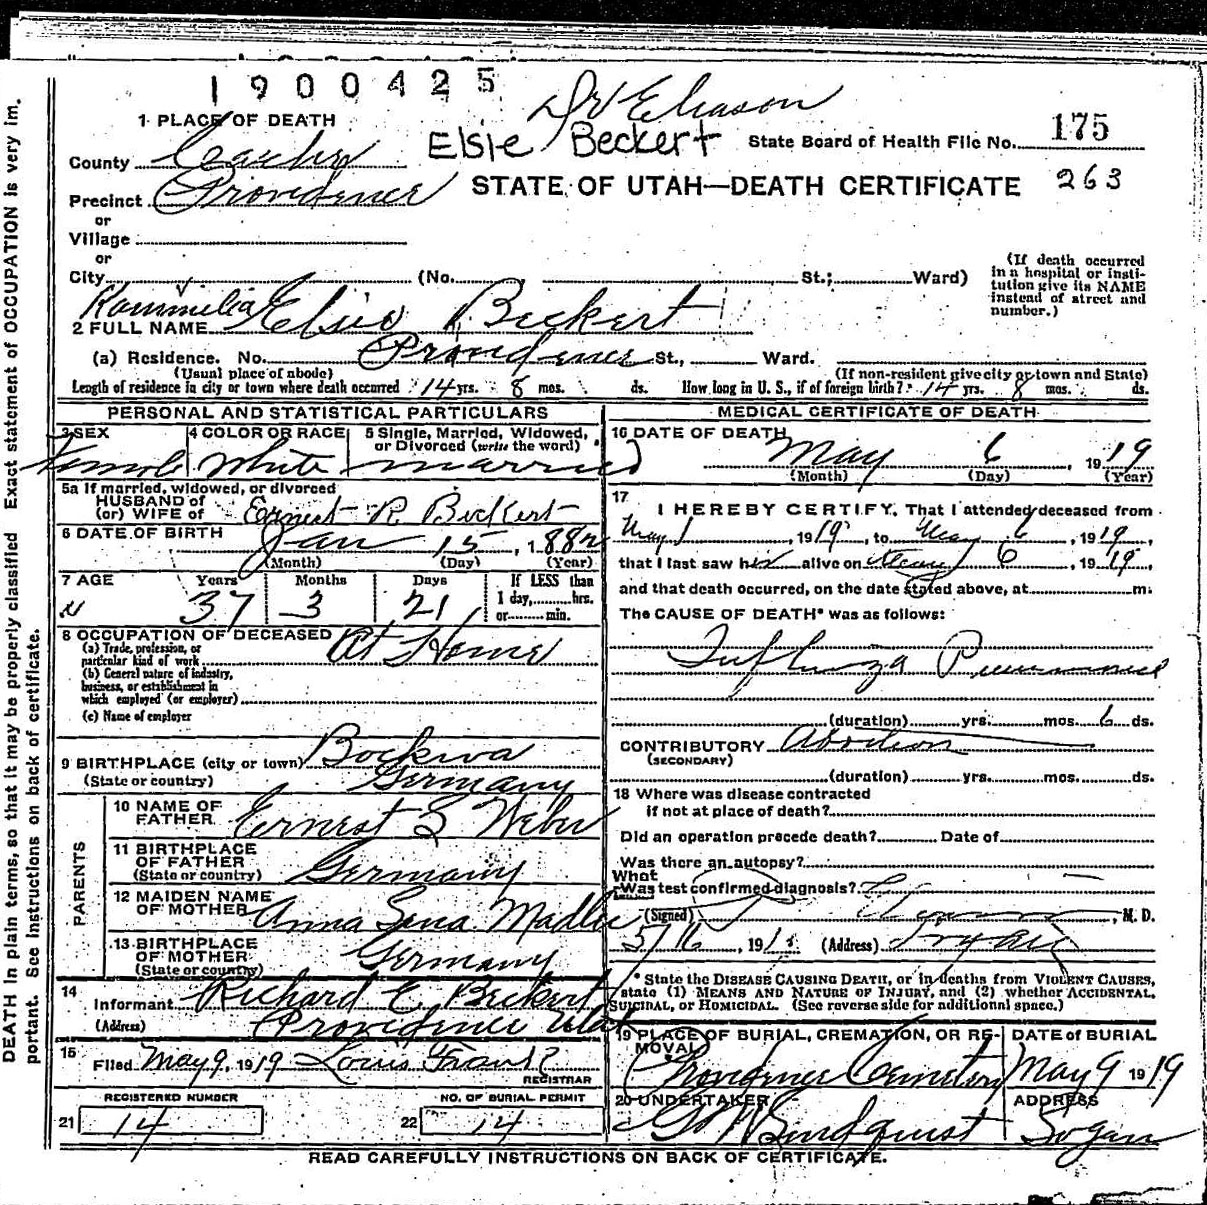 1900425
Dr Eliason
1 PLACE OF DEATH
Elsie Beckert
State Board of Health File No. 175
County Cache
STATE OF UTAH—DEATH CERTIFICATE 263
Precinct Providence
or
Village
or
City (No. St.; Ward)
(If death occurred
in a hospital or insti-
tution give its NAME
instead of street and
number.)
Kammilia
2 FULL NAME Elsie Beckert
(a) Residence. No. Providence St., Ward.
(Usual place of abode)
(If non-resident give city or town and State)
Length of residence in city or town where death occurred 14 yrs. 8 mos. ds. How long in U. S., if of foreign birth? 14 yrs. 8 mos. ds.
PERSONAL AND STATISTICAL PARTICULARS
3 SEX
Female
4 COLOR OR RACE
White
5 Single, Married, Widowed,
or Divorced (write the word)
married
5a If married, widowed, or divorced
HUSBAND of
(or) WIFE of Ernest R Beckert
6 DATE OF BIRTH
Jan 15, 1882
(Month) (Day) (Year)
7 AGE Years Months Days If LESS than
1 day, hrs.
or min.
37 3 21
8 OCCUPATION OF DECEASED
(a) Trade, profession, or
particular kind of work At Home
(b) General nature of industry,
business, or establishment in
which employed (or employer)
(c) Name of employer
9 BIRTHPLACE (city or town) Bockwa
(State or country) Germany
PARENTS
10 NAME OF
FATHER Ernest S Weber
11 BIRTHPLACE
OF FATHER
(State or country) Germany
12 MAIDEN NAME
OF MOTHER Anna Madler
13 BIRTHPLACE
OF MOTHER
(State or country) Germany
14
Informant Richard E. Beckert
(Address) Providence Utah
15
Filed May 9, 1919 Louis Frank
REGISTRAR
REGISTERED NUMBER
21 14
NO. OF BURIAL PERMIT
22 14
MEDICAL CERTIFICATE OF DEATH
16 DATE OF DEATH
May 6, 1919
(Month) (Day) (Year)
17
I HEREBY CERTIFY, That I attended deceased from
May 1, 1919, to May 6, 1919,
that I last saw her alive on May 6, 1919,
and that death occurred, on the date stated above, at m.
The CAUSE OF DEATH* was as follows:
Influenza Pneumonia
(duration) yrs. mos. 6 ds.
CONTRIBUTORY Abortion
(SECONDARY)
(duration) yrs. mos. ds.
18 Where was disease contracted
if not at place of death?
Did an operation precede death? Date of
Was there an autopsy?
What
Was test confirmed diagnosis?
(Signed) , M. D.
5/16, 191 (Address) Logan
* State the DISEASE CAUSING DEATH, or in deaths from VIOLENT CAUSES,
state (1) MEANS AND NATURE OF INJURY, and (2) whether ACCIDENTAL,
SUICIDAL, or HOMICIDAL. (See reverse side for additional space.)
19 PLACE OF BURIAL, CREMATION, OR RE-
MOVAL
Providence Cemetery
DATE of BURIAL
May 9 1919
20 UNDERTAKER
G W Lindquist
ADDRESS
Logan
READ CAREFULLY INSTRUCTIONS ON BACK OF CERTIFICATE.
DEATH in plain terms, so that it may be properly classified Exact statement of OCCUPATION is very im-
portant. See instructions on back of certificate.